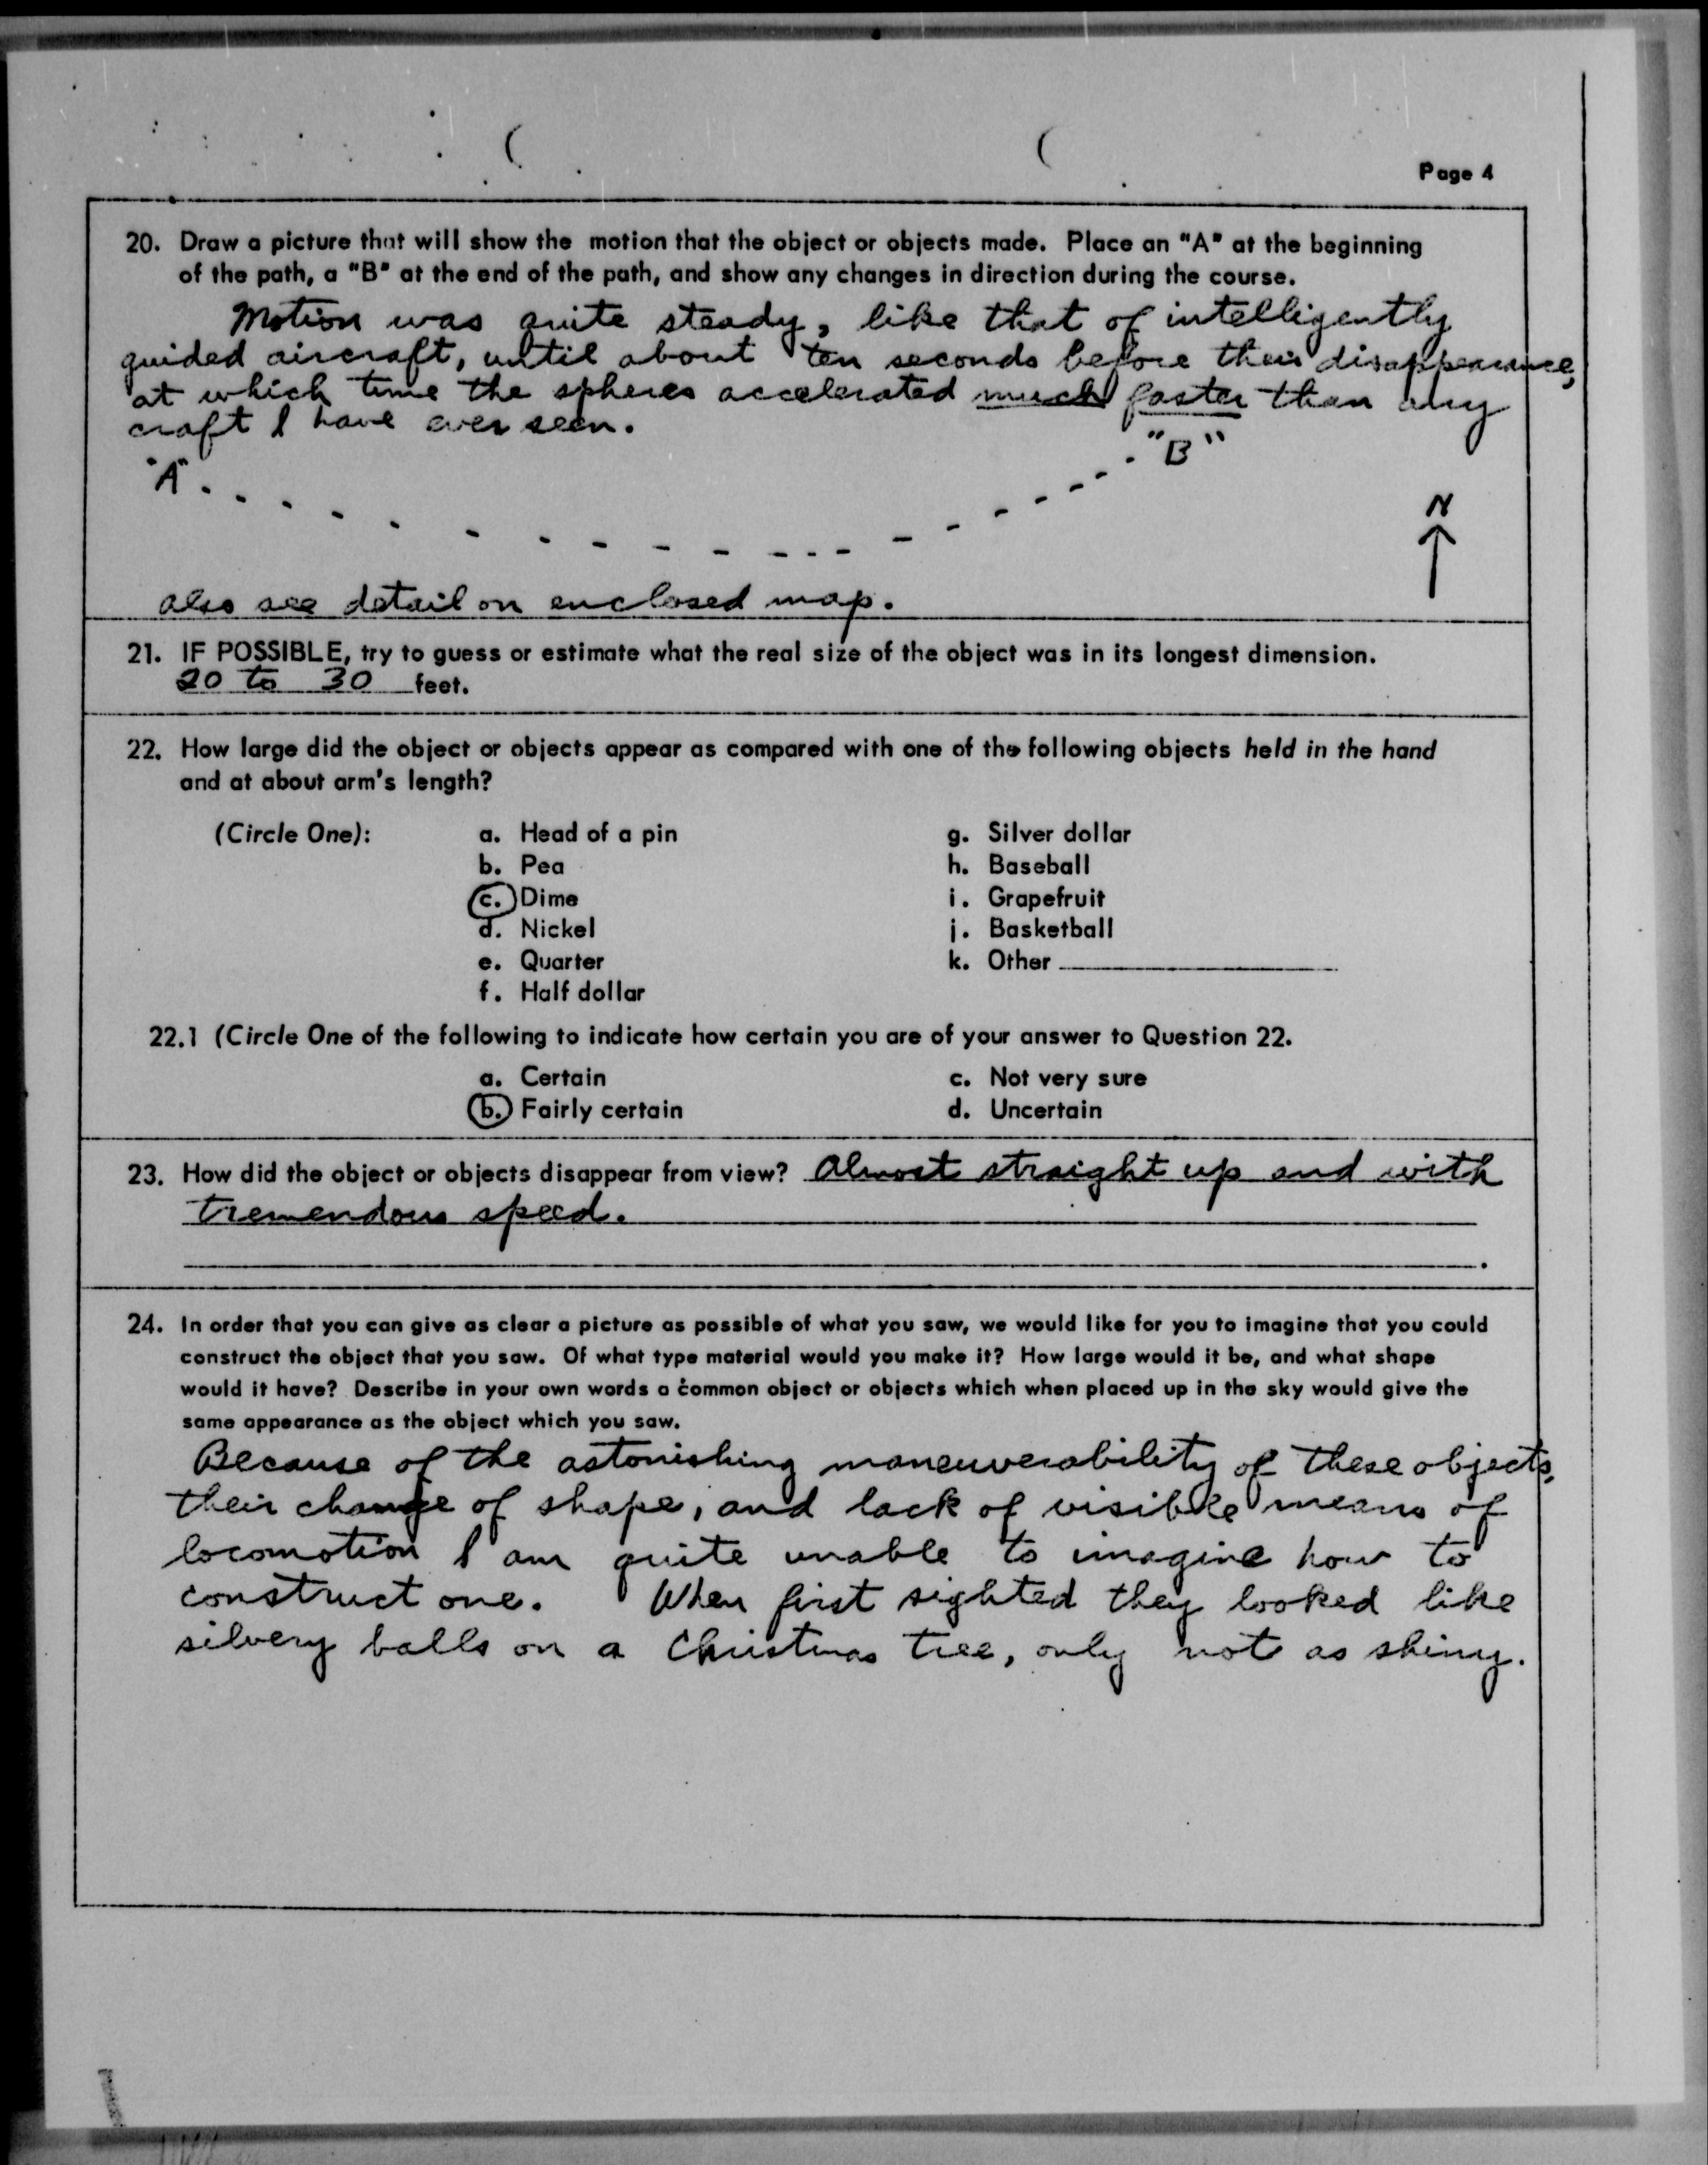 Page 4
20. Draw a picture that will show the motion that the object or objects made. Place an "A" at the beginning
of the path, a "B" at the end of the path, and show any changes in direction during the course.
Motion was quite steady, like that of intelligently
guided aircraft, until about ten seconds before their disappearance,
at which time the spheres accelerated much faster than any
craft I have ever seen.
"A"
"B"
N
also see detail on enclosed map.
21. IF POSSIBLE, try to guess or estimate what the real size of the object was in its longest dimension.
20 to 30 feet.
22. How large did the object or objects appear as compared with one of the following objects held in the hand
and at about arm's length?
(Circle One): a. Head of a pin g. Silver dollar
b. Pea h. Baseball
c. Dime i. Grapefruit
d. Nickel j. Basketball
e. Quarter k. Other
f. Half dollar
22.1 (Circle One of the following to indicate how certain you are of your answer to Question 22.
a. Certain c. Not very sure
b. Fairly certain d. Uncertain
23. How did the object or objects disappear from view? Almost straight up and with
tremendous speed.
24. In order that you can give as clear a picture as possible of what you saw, we would like for you to imagine that you could
construct the object that you saw. Of what type material would you make it? How large would it be, and what shape
would it have? Describe in your own words a common object or objects which when placed up in the sky would give the
same appearance as the object which you saw.
Because of the astonishing maneuverability of these objects,
their change of shape, and lack of visible means of
locomotion I am quite unable to imagine how to
construct one. When first sighted they looked like
silvery balls on a Christmas tree, only not as shiny.